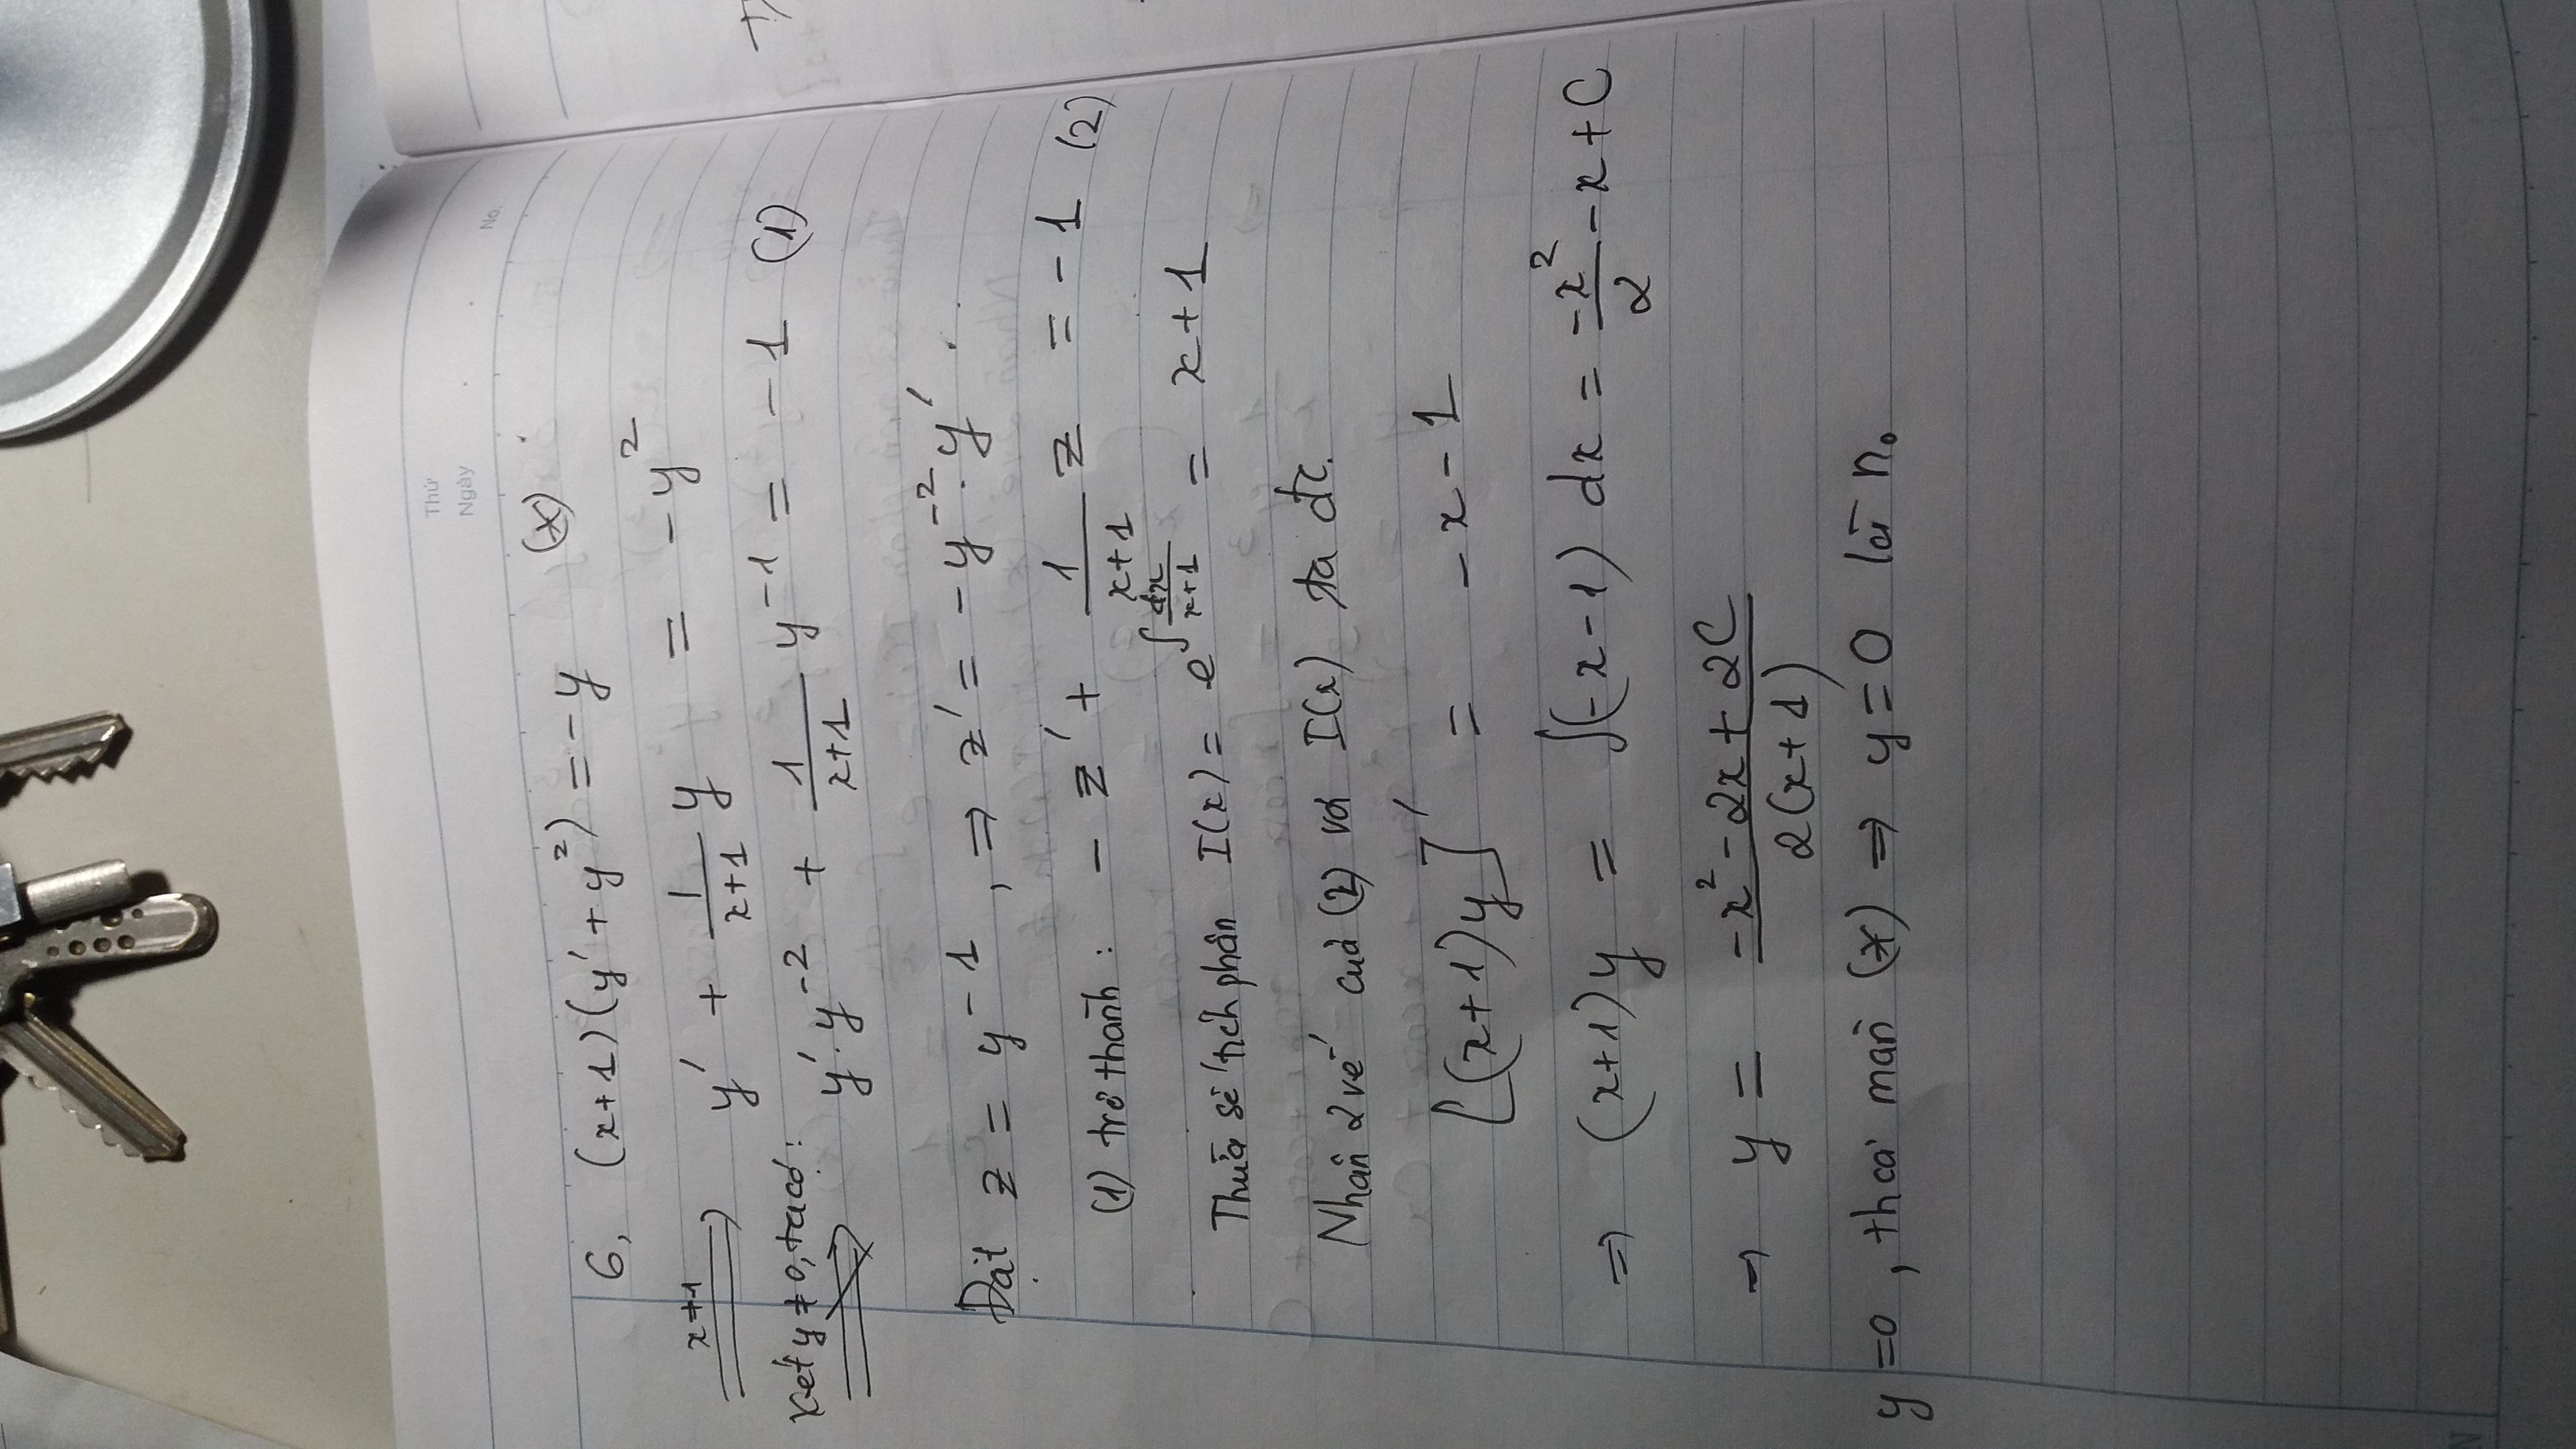 Thứ
Ngày
No.
6, (x+1)(y' + y²) = -y (*)
x≠-1 ⟹ y' + 1/(x+1) y = -y²
Xét y ≠ 0, ta có:
y'.y⁻² + 1/(x+1) y⁻¹ = -1 (1)
Đặt z = y⁻¹, ⇒ z' = -y⁻².y'
(1) trở thành: -z' + 1/(x+1) z = -1 (2)
Thừa số tích phân I(x) = e^(∫dx/(x+1)) = x+1
Nhân 2 vế của (2) với I(x) ta đc.
[(x+1)y]' = -x-1
⇒ (x+1)y = ∫(-x-1) dx = -x²/2 - x + C
⇒ y = (-x² - 2x + 2C)/(2(x+1))
y=0, thoả mãn (*) ⇒ y=0 là n₀